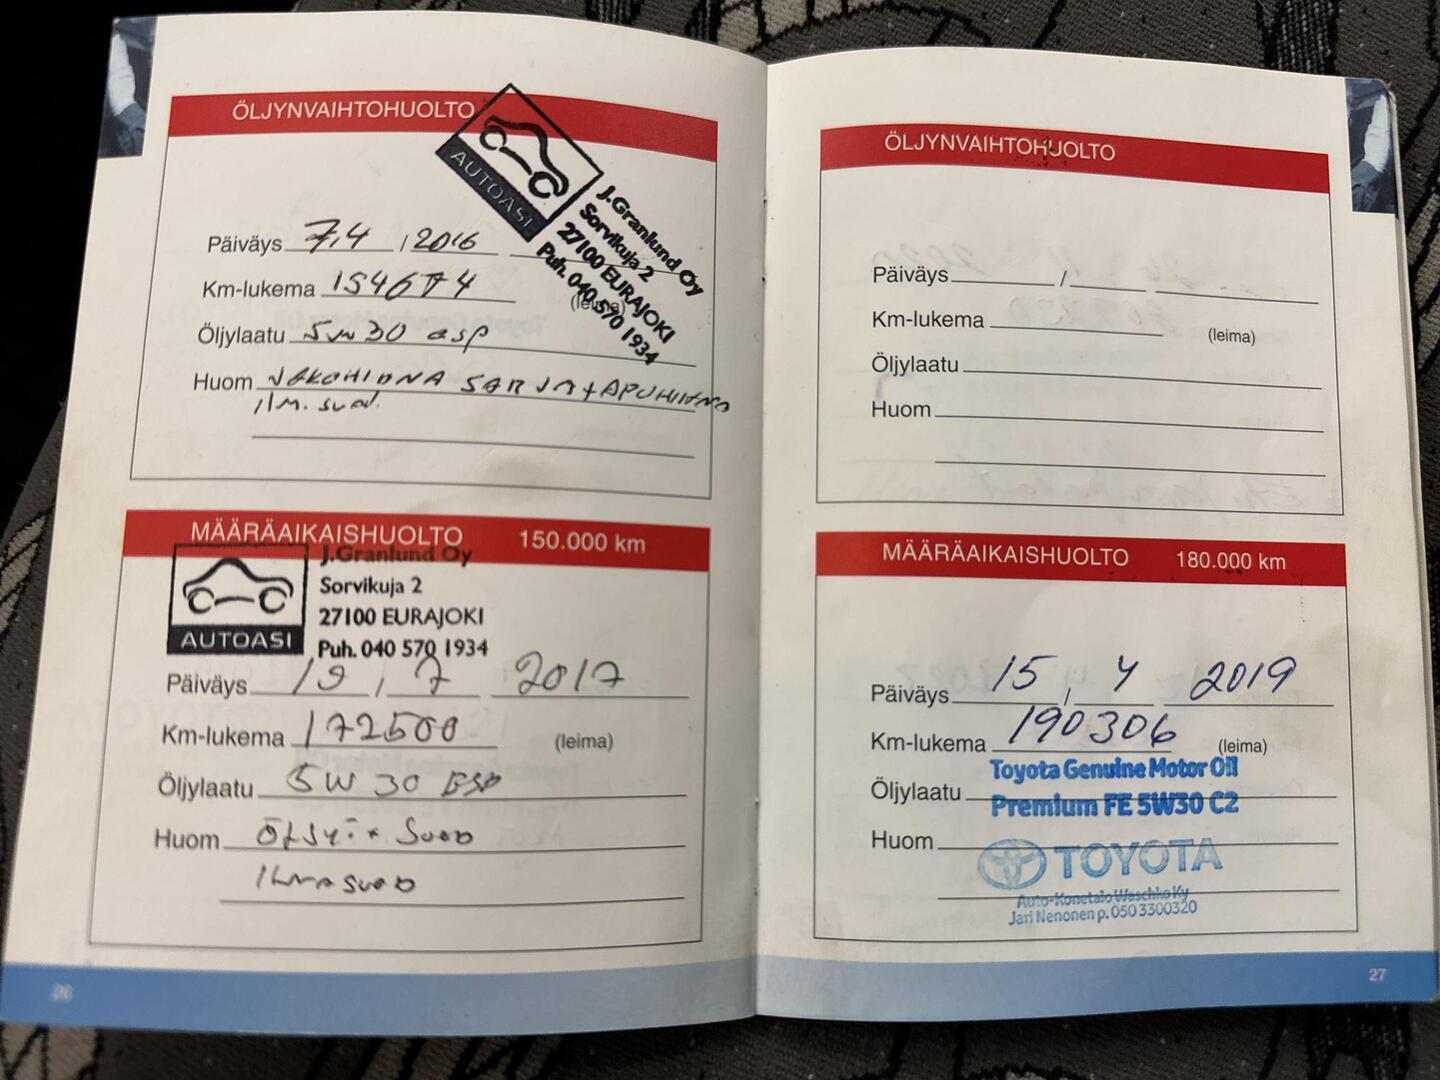 ÖLJYNVAIHTOHUOLTO
AUTOASI
J.Granlund Oy
Sorvikuja 2
27100 EURAJOKI
Puh. 040 570 1934
Päiväys 7.4 / 2016
Km-lukema 154674
(leima)
Öljylaatu 5W30 esp
Huom JAKOHIHNA SARJA + APUHIHNA
ilm. suod.
MÄÄRÄAIKAISHUOLTO 150.000 km
J.Granlund Oy
Sorvikuja 2
27100 EURAJOKI
AUTOASI
Puh. 040 570 1934
Päiväys 19 / 7 2017
Km-lukema 172500 (leima)
Öljylaatu 5W30 ESP
Huom ÖLJY + SUOD
ILMASUOD
26
ÖLJYNVAIHTOHUOLTO
Päiväys /
Km-lukema (leima)
Öljylaatu
Huom
MÄÄRÄAIKAISHUOLTO 180.000 km
Päiväys 15 / 4 2019
Km-lukema 190306 (leima)
Toyota Genuine Motor Oil
Öljylaatu Premium FE 5W30 C2
Huom
TOYOTA
Auto-Konetalo Waschko Ky
Jari Nenonen p. 050 3300320
27